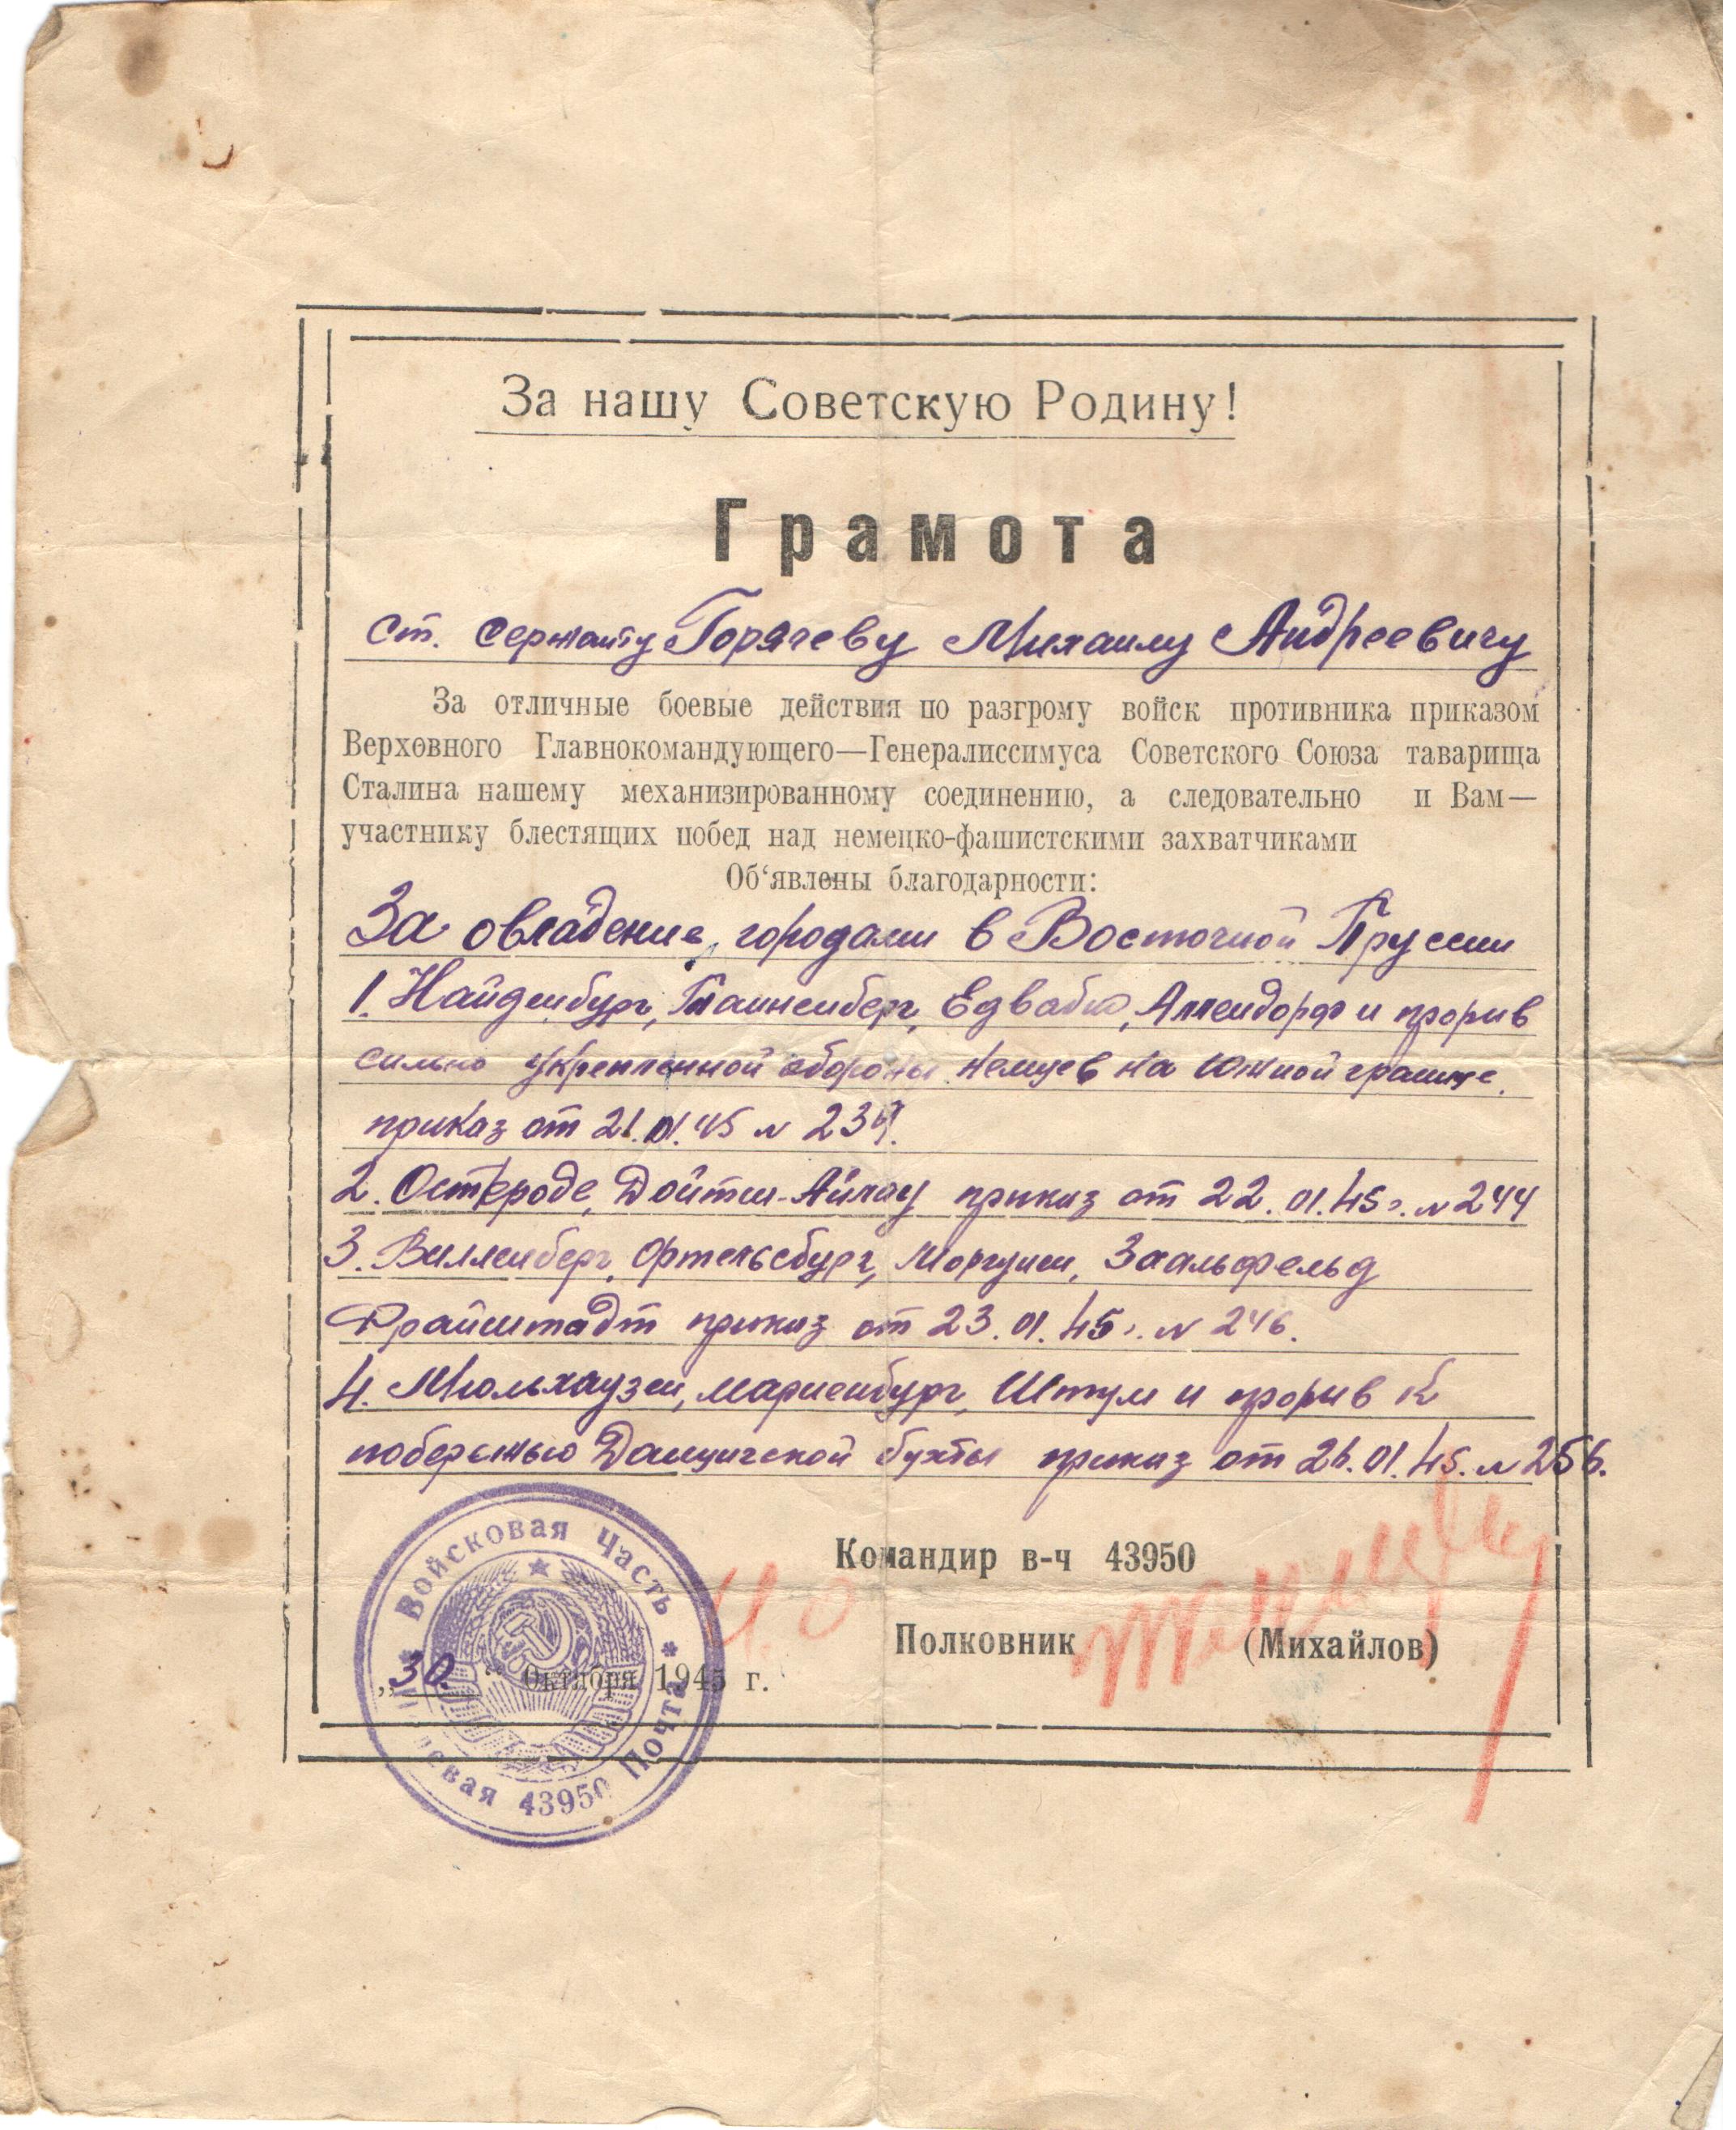 За нашу Советскую Родину!
Грамота
Ст. сержанту Горячеву Михаилу Андреевичу
За отличные боевые действия по разгрому войск противника приказом
Верховного Главнокомандующего—Генералиссимуса Советского Союза таварища
Сталина нашему механизированному соединению, а следовательно и Вам—
участнику блестящих побед над немецко-фашистскими захватчиками
Об‘явлены благодарности:
За овладение городами в Восточной Пруссии
1. Найденбург, Танненберг, Едвабно, Аллендорф и прорыв
сильно укрепленной обороны немцев на южной границе.
приказ от 21.01.45 N 239.
2. Остероде, Дойтш-Айлау приказ от 22.01.45г. N 244
3. Вилленберг, Ортельсбург, Морунген, Заальфельд
Фрайштадт приказ от 23.01.45г. N 246.
4. Мюльхаузен, Мариенбург, Штум и прорыв к
побережью Данцигской бухты приказ от 26.01.45. N 256.
Командир в-ч 43950
Полковник (Михайлов)
„30.“ Октября 1945 г.
Войсковая Часть * Почта 43950